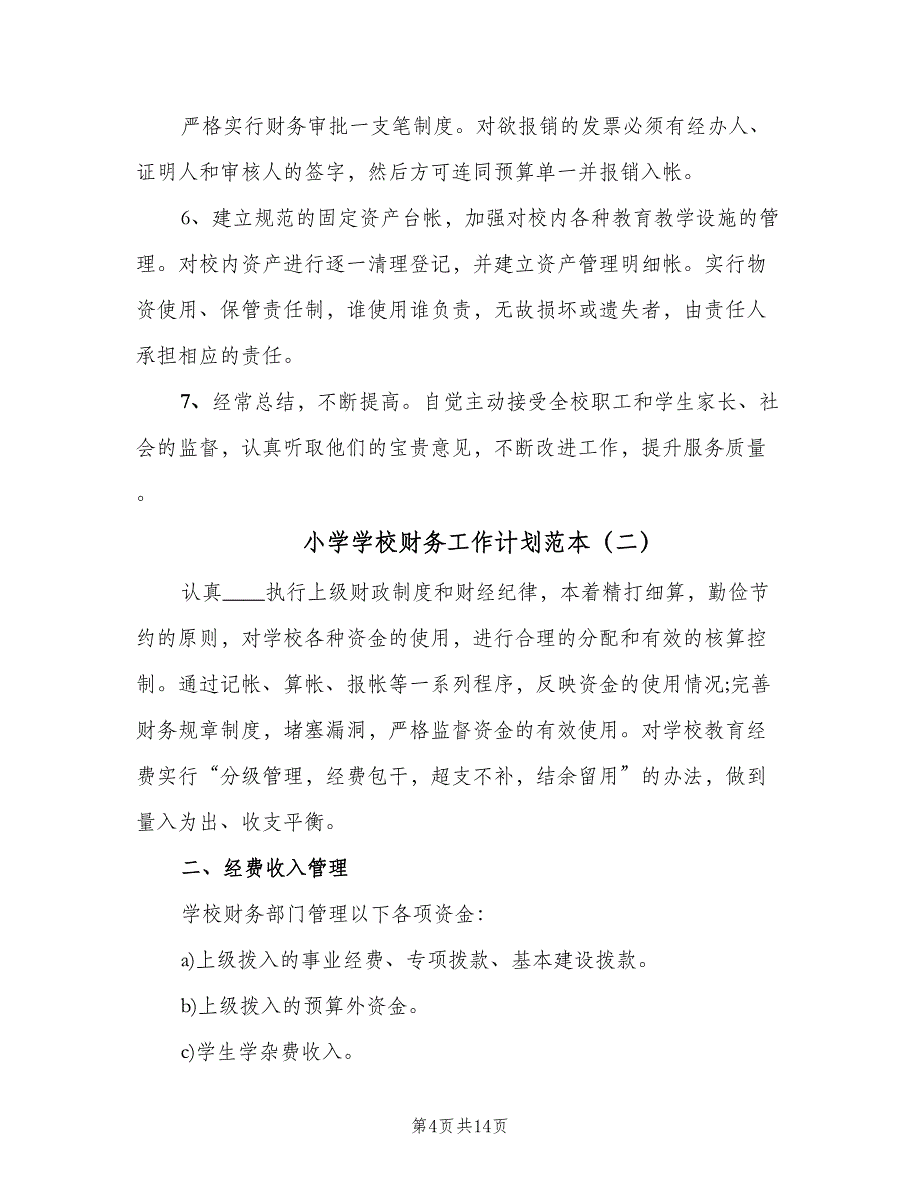 严格实行财务审批一支笔制度。对欲报销的发票必须有经办人、
证明人和审核人的签字，然后方可连同预算单一并报销入帐。
6、建立规范的固定资产台帐，加强对校内各种教育教学设施的管
理。对校内资产进行逐一清理登记，并建立资产管理明细帐。实行物
资使用、保管责任制，谁使用谁负责，无故损坏或遗失者，由责任人
承担相应的责任。
7、经常总结，不断提高。自觉主动接受全校职工和学生家长、社
会的监督，认真听取他们的宝贵意见，不断改进工作，提升服务质量
。
小学学校财务工作计划范本（二）
认真____执行上级财政制度和财经纪律，本着精打细算，勤俭节
约的原则，对学校各种资金的使用，进行合理的分配和有效的核算控
制。通过记帐、算帐、报帐等一系列程序，反映资金的使用情况;完善
财务规章制度，堵塞漏洞，严格监督资金的有效使用。对学校教育经
费实行“分级管理，经费包干，超支不补，结余留用”的办法，做到
量入为出、收支平衡。
二、经费收入管理
学校财务部门管理以下各项资金：
a)上级拨入的事业经费、专项拨款、基本建设拨款。
b)上级拨入的预算外资金。
c)学生学杂费收入。
第4页共14页